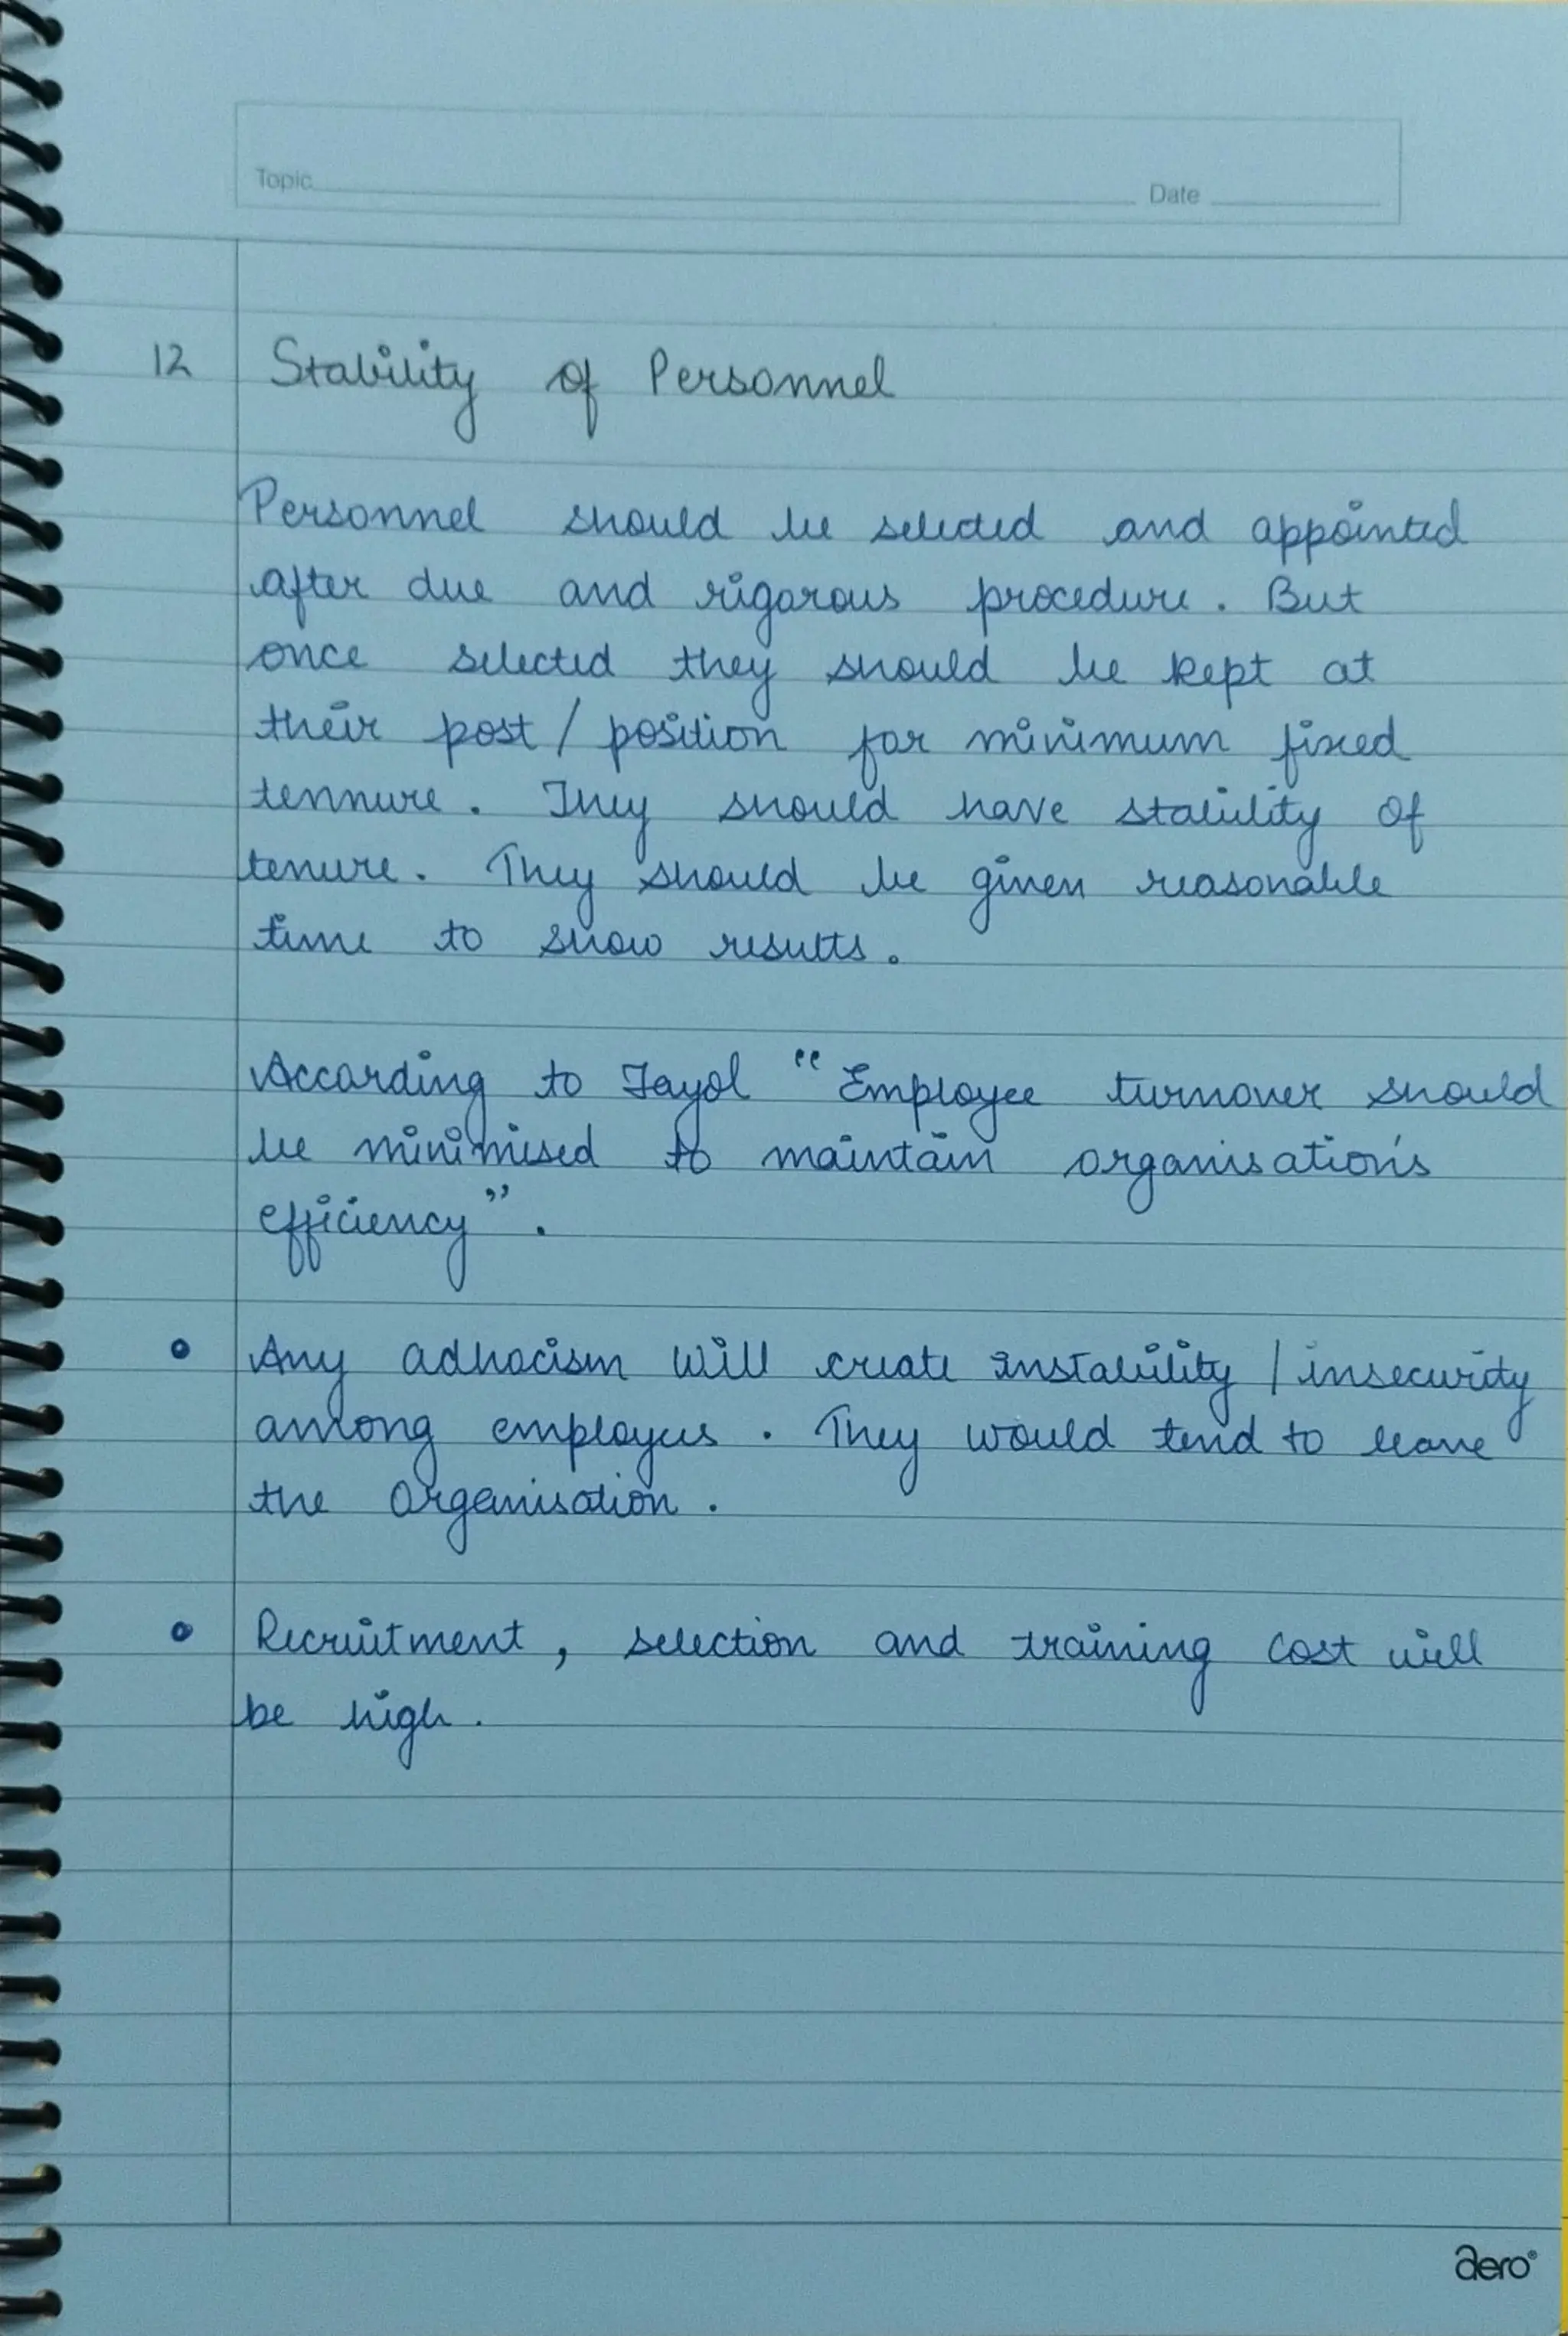 Topic Date
12 Stability of Personnel
Personnel should be selected and appointed
after due and rigorous procedure. But
once selected they should be kept at
their post / position for minimum fixed
tennure. They should have stability of
tenure. They should be given reasonable
time to show results.
According to Fayol "Employee turnover should
be minimised to maintain organisation's
efficiency".
• Any adhocism will create instability / insecurity
among employees. They would tend to leave
the organisation.
• Recruitment, selection and training cost will
be high.
aero®